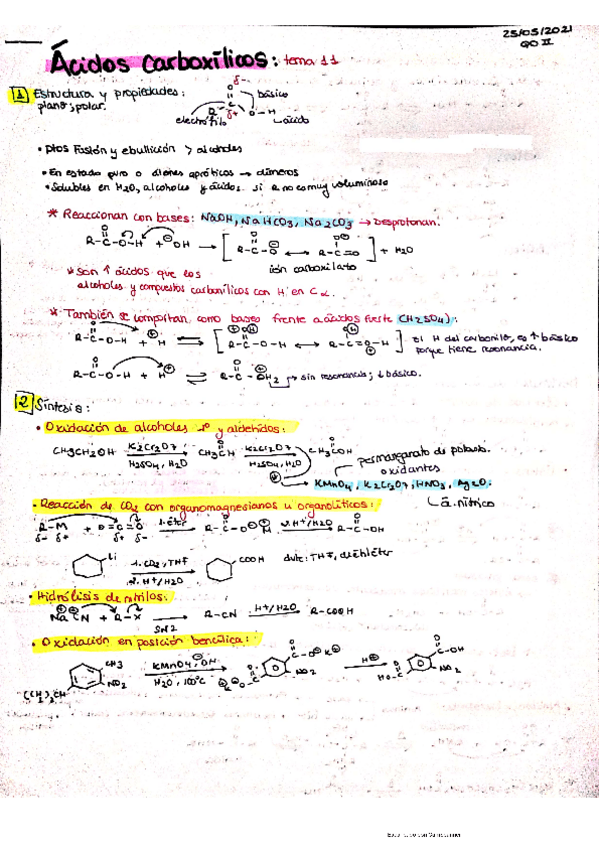 25/05/2021
QO II
Ácidos carboxílicos: tema 11
1 Estructura y propiedades:
plano; polar.
básico
electrófilo
ácido
• ptos fusión y ebullición > alcoholes
• En estado puro o en aptóticos → dímeros
• Solubles en H2O, alcoholes y ácidos si R no es muy voluminoso
* Reaccionan con bases: NaOH, NaHCO3, Na2CO3 → Desprotonan.
R-C-O-H + OH → [ R-C-O ↔ R-C=O ] + H2O
ión carboxilato
* Son ↑ ácidos que los
alcoholes y compuestos carbonílicos con H en Cα.
* También se comportan como bases frente a ácidos fuerte (H2SO4):
R-C-O-H + H ⇌ [ R-C-O-H ↔ R-C=O-H ] El H del carbonilo, es ↑ básico
porque tiene resonancia.
R-C-O-H + H ⇌ R-C-OH2 → sin resonancia; ↓ básico.
2 Síntesis:
• Oxidación de alcoholes 1º y aldehídos:
CH3CH2OH K2Cr2O7 H2SO4, H2O CH3CH K2Cr2O7 H2SO4, H2O CH3COH
permanganato de potasio.
oxidantes
KMnO4, K2Cr2O7, HNO3, Ag2O.
á. nítrico
• Reacción de CO2 con organomagnesianos u organolíticos:
R-M + O=C=O 1. éter R-C-O M 2. H+/H2O R-C-OH
Li 1. CO2, THF 2. H+/H2O COOH
• Hidrólisis de nitrilos:
Na CN + R-X SN2 R-CN H+/H2O R-COOH
• Oxidación en posición bencílica:
CH3 NO2 (CH3)2CH KMnO4, OH H2O, 100ºC C-O K NO2 H C-OH HO-C NO2